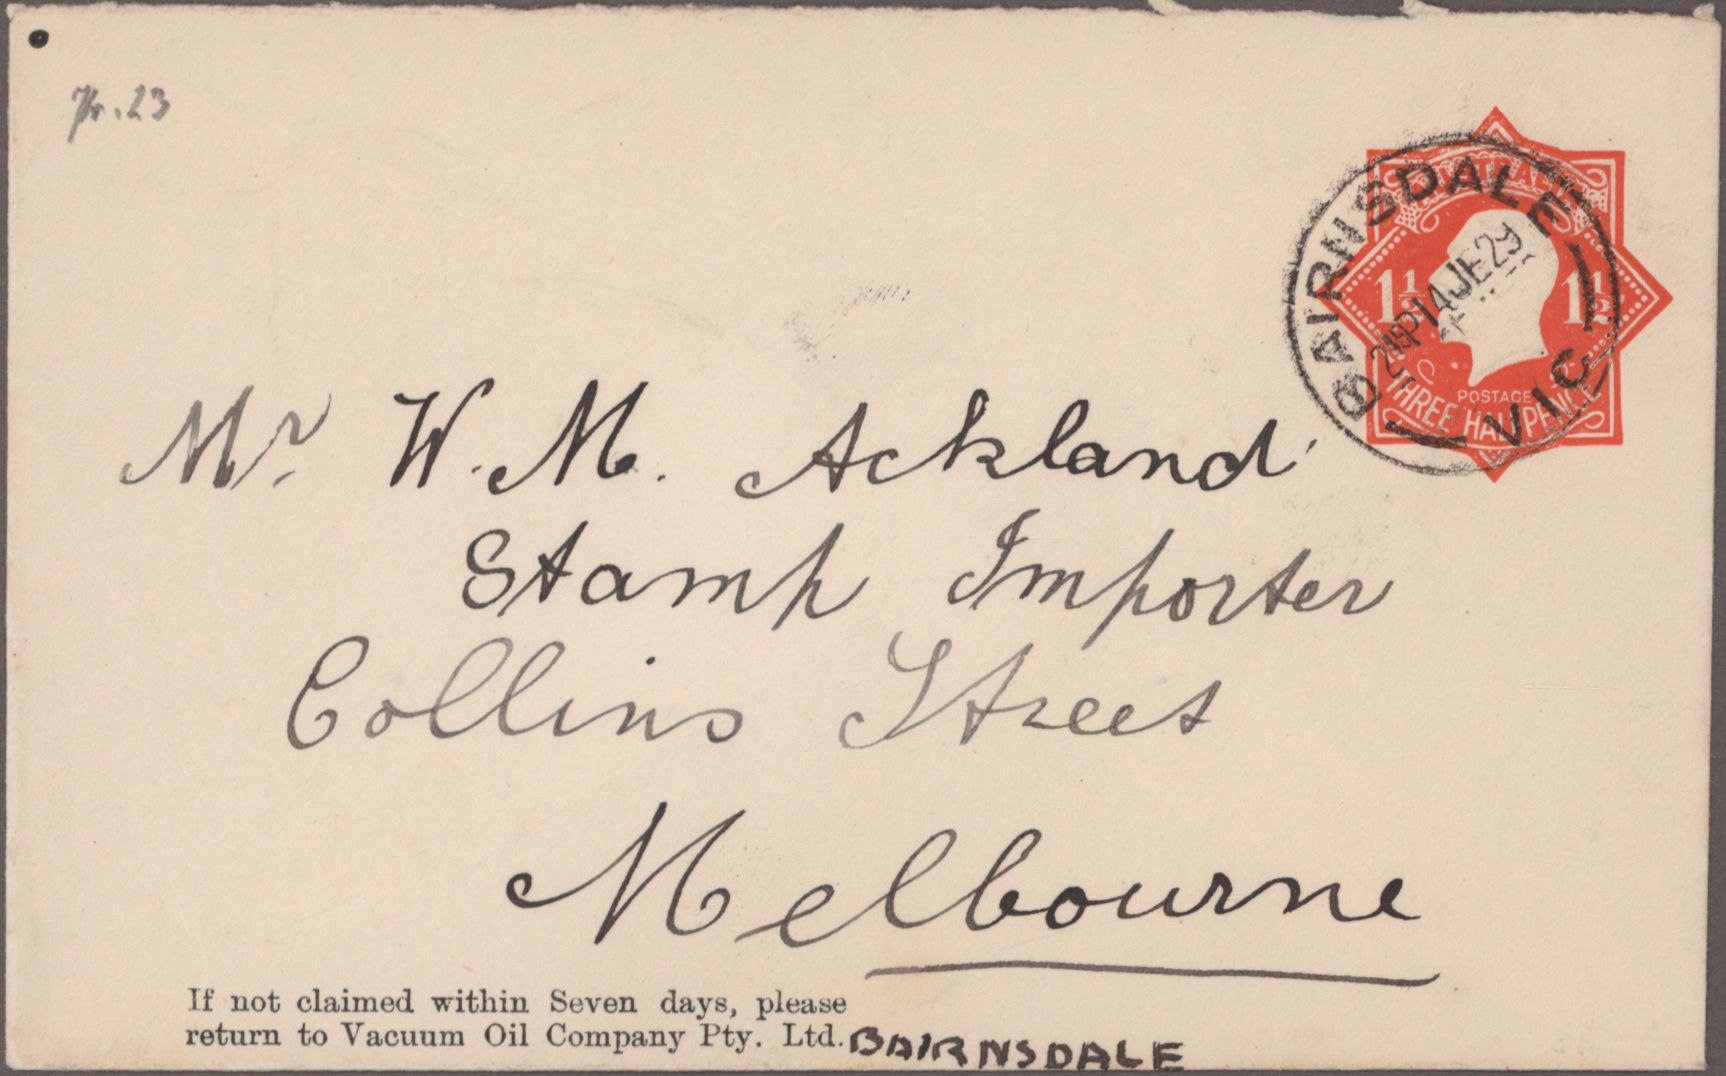 BAIRNSDALE
14 JE 29
VIC
AUSTRALIA
1½ 1½
POSTAGE
THREE HALFPENCE
Mr W. M. Ackland
Stamp Importer
Collins Street
Melbourne
If not claimed within Seven days, please
return to Vacuum Oil Company Pty. Ltd. BAIRNSDALE